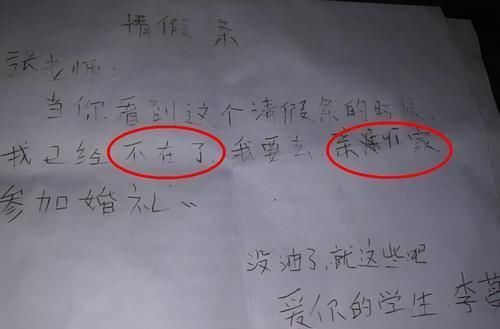 情假条
张老师：
当你看到这个清假条的时候，
我已经不在了，我要去亲家
参加婚礼。
没油了，就这些吧
爱你的学生 李